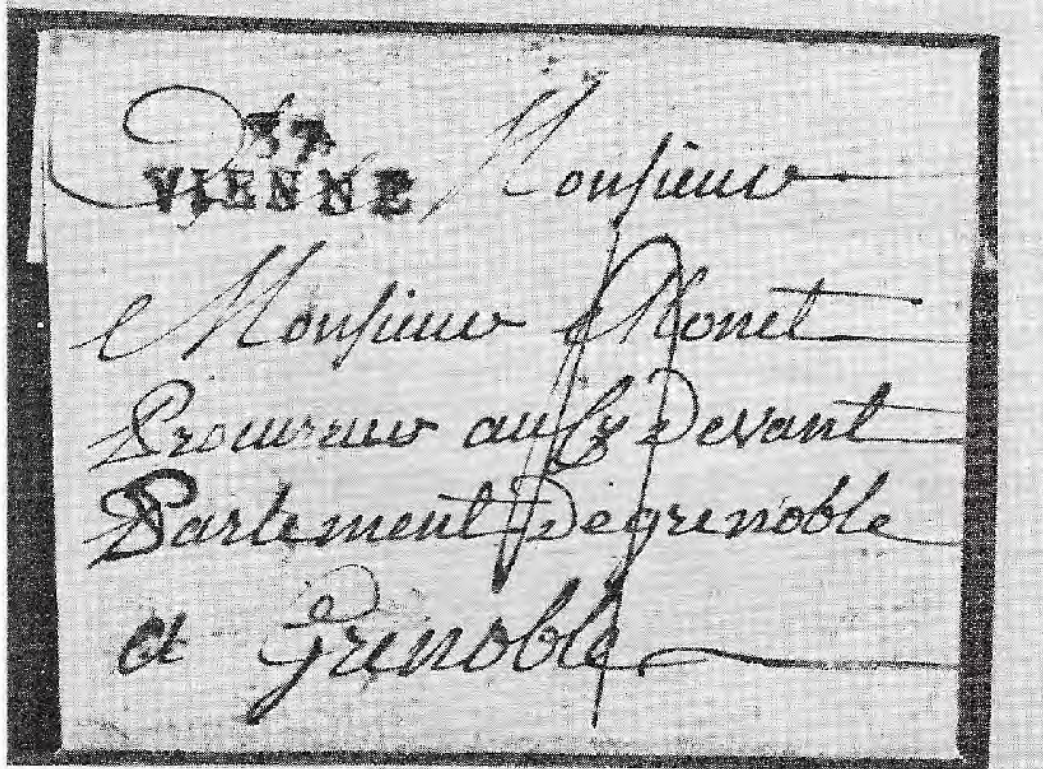 37
VIENNE
Monsieur
Monsieur Monet
Procureur au Cy Devant
Parlement De grenoble
a Grenoble